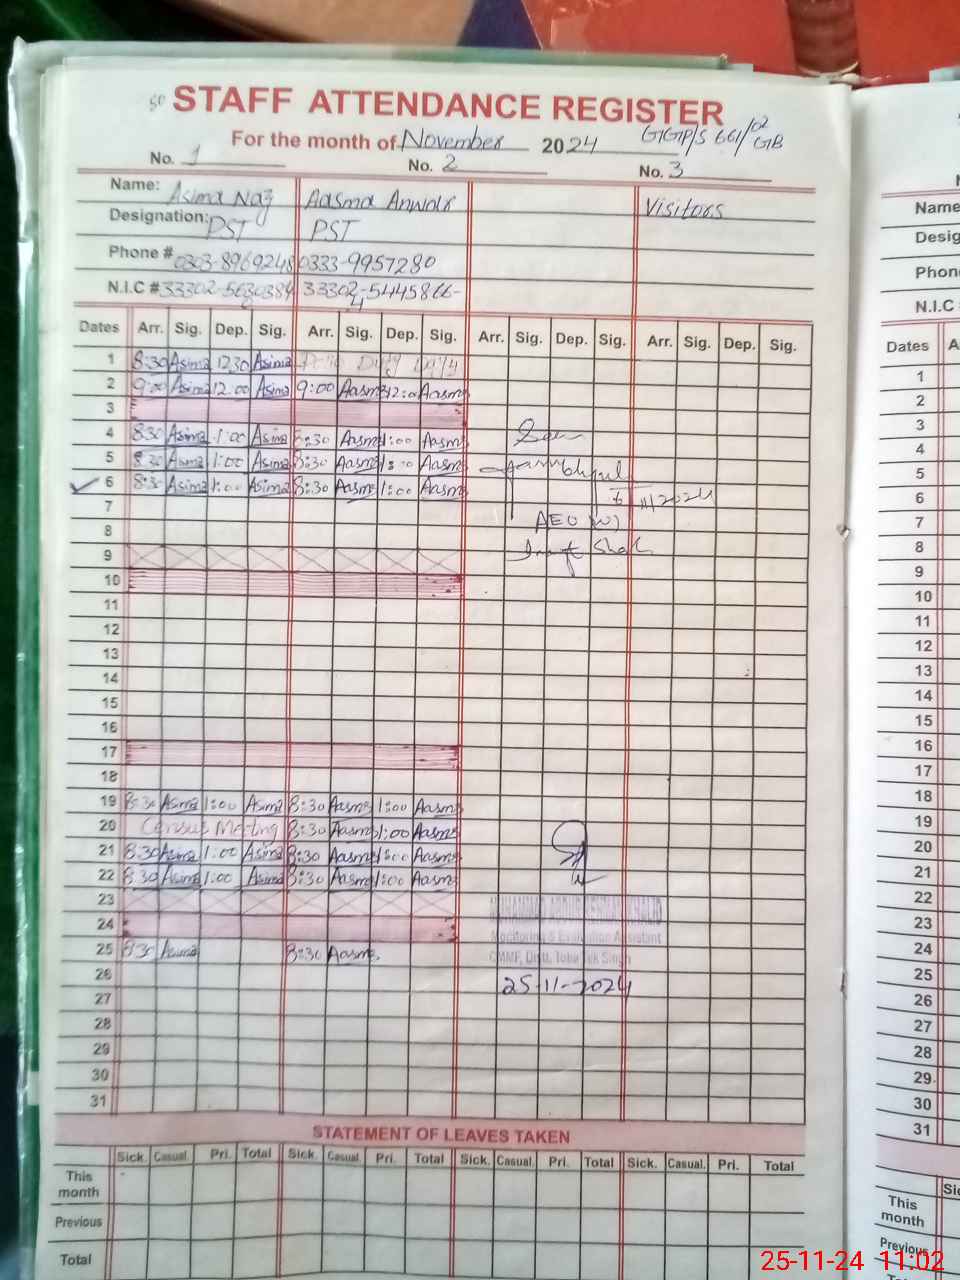 STAFF ATTENDANCE REGISTER
For the month of November 2024
No. 1 No. 2 No. 3
Name: Asima Naz Aasma Anwar Visitors
Designation: PST PST
Phone # 0303-8969248 0333-9957280
N.I.C #
Dates Arr. Sig. Dep. Sig. Arr. Sig. Dep. Sig. Arr. Sig. Dep. Sig. Arr. Sig. Dep. Sig.
1 8:30 Asima 12:30 Asima
2 9:00 Asima 12:00 Asima 9:00 Aasma 12:00 Aasma
3
4 8:30 Asima 1:00 Asima 8:30 Aasma 1:00 Aasma
5 8:30 Asima 1:00 Asima 8:30 Aasma 1:00 Aasma
6 8:30 Asima 1:00 Asima 8:30 Aasma 1:00 Aasma
6/11/2024
7
AEO (W)
8
9
10
11
12
13
14
15
16
17
18
19 8:30 Asima 1:00 Asima 8:30 Aasma 1:00 Aasma
20 Census Meeting 8:30 Aasma 1:00 Aasma
21 8:30 Asima 1:00 Asima 8:30 Aasma 1:00 Aasma
22 8:30 Asima 1:00 Asima 8:30 Aasma 1:00 Aasma
23
24
Monitoring & Evaluation Assistant
25 8:30 Asima 8:30 Aasma
CMMF, Distt. Toba Tek Singh
26
25-11-2024
27
28
29
30
31
STATEMENT OF LEAVES TAKEN
Sick. Casual. Pri. Total Sick. Casual. Pri. Total Sick. Casual. Pri. Total Sick. Casual. Pri. Total
This month
Previous
Total
Name
Phon
N.I.C
Dates
1
2
3
4
5
6
7
8
9
10
11
12
13
14
15
16
17
18
19
20
21
22
23
24
25
26
27
28
29
30
31
This
month
25-11-24 11:02